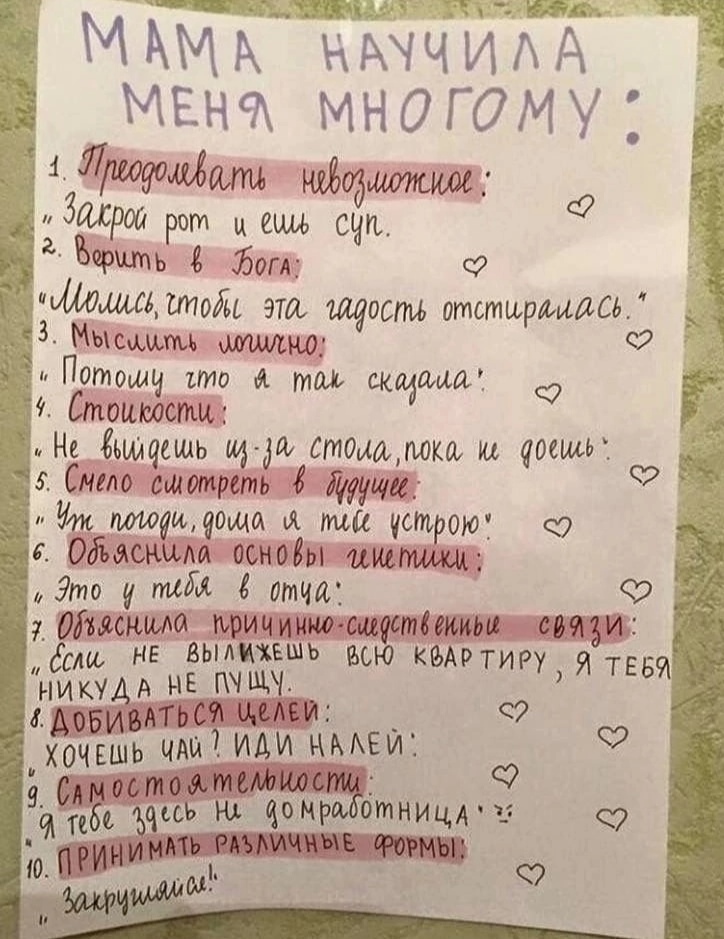 МАМА НАУЧИЛА
МЕНЯ МНОГОМУ:
1. Преодолевать невозможное:
„Закрой рот и ешь суп.
2. Верить в Бога:
"Молись, чтобы эта гадость отстиралась."
3. Мыслить логично:
„Потому что я так сказала".
4. Стоикости:
„Не выйдешь из-за стола, пока не доешь".
5. Смело смотреть в будущее:
„Уж погоди, дома я тебе устрою"
6. Объяснила основы генетики:
„Это у тебя в отца".
7. Объяснила причинно-следственные связи:
„Если НЕ ВЫЛИЖЕШЬ ВСЮ КВАРТИРУ, Я ТЕБЯ
НИКУДА НЕ ПУЩУ.
8. ДОБИВАТЬСЯ ЦЕЛЕЙ:
„ХОЧЕШЬ ЧАЙ? ИДИ НАЛЕЙ".
9. Самостоятельности:
"Я тебе здесь не домработница"
10. ПРИНИМАТЬ РАЗЛИЧНЫЕ ФОРМЫ:
„Закругляйся!"